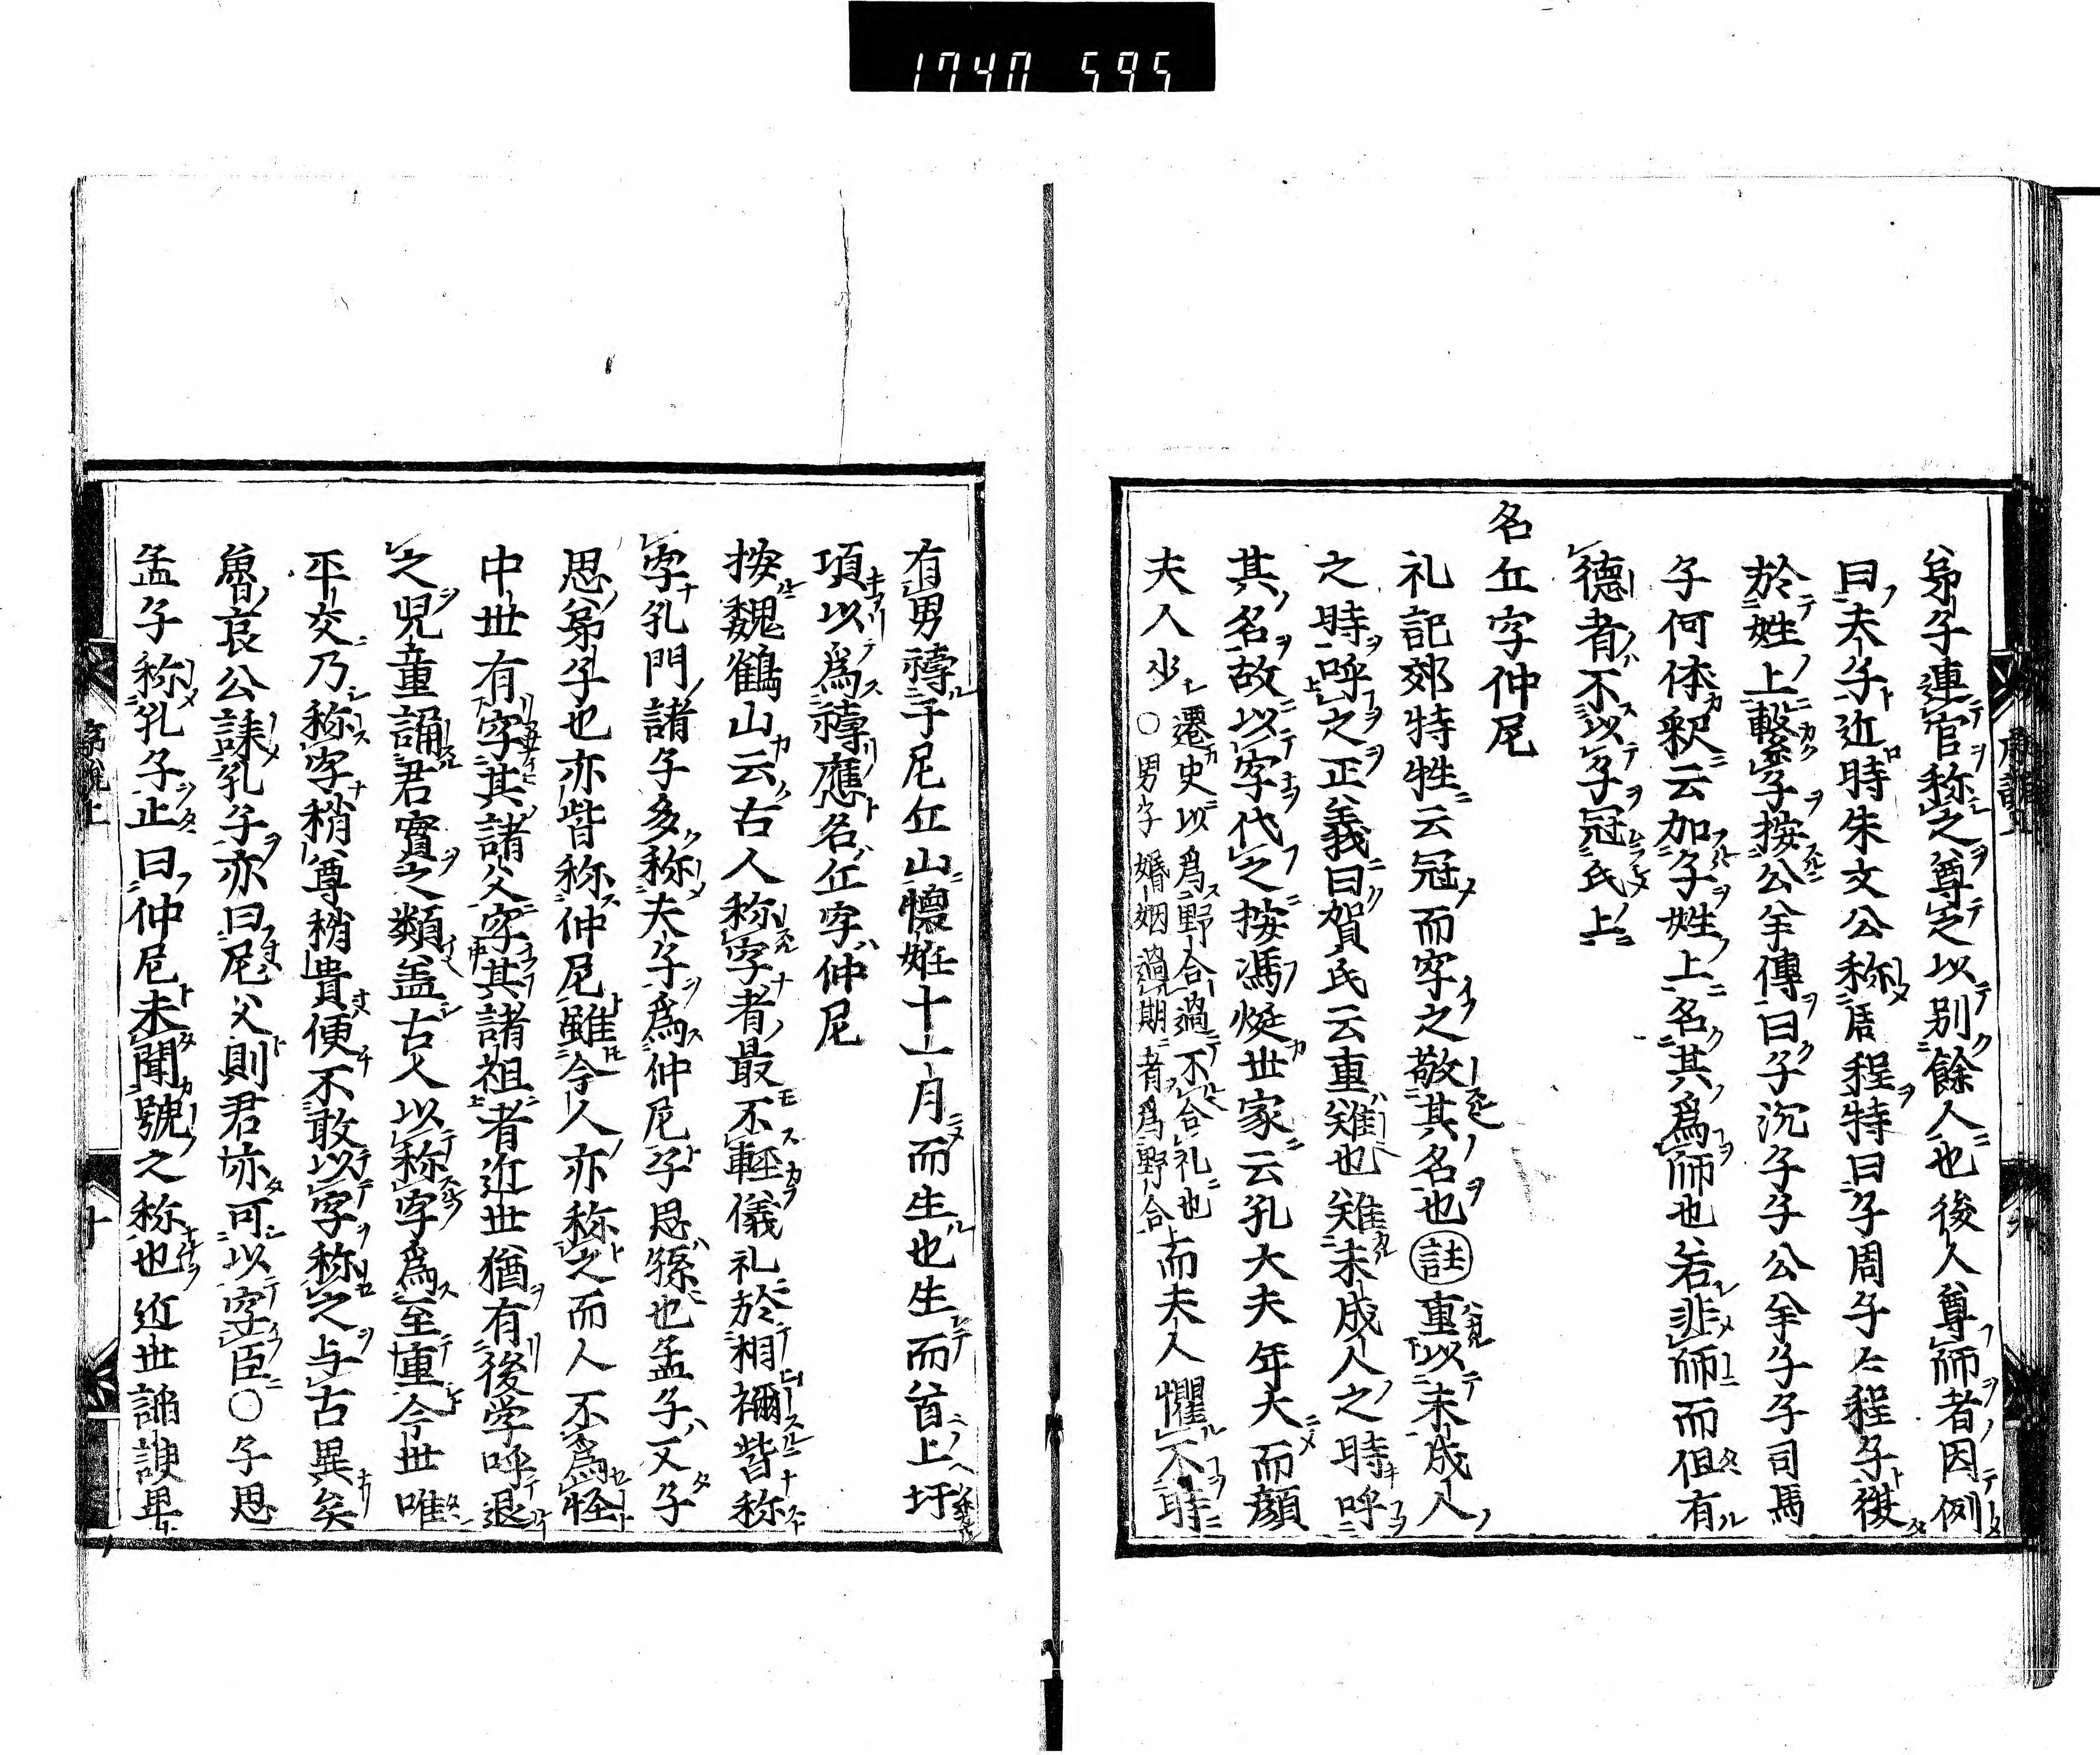 1740 595
弟子連官称之尊之以別餘人也後人尊師者因例
曰夫子近時朱文公称周程特曰子周子仁程子從
於姓上繋字按公羊傳曰子沉子子公羊子子司馬
子何体釈云加子姓上名其為師也若非師而但有
德者不以子冠氏上
名丘字仲尼
礼記郊特牲云冠而字之敬其名也註重以未成人
之時呼之正義曰賀氏云重難也難未成人之時呼
其名故以字代之按馮㷌世家云孔大夫年大而顔
夫人少遷史以為野合過不合礼也〇男子婚姻過期者為野合而夫人懼不時
有男禱于尼丘山懷姙十一月而生也生而首上圩
項以為禱應名丘字仲尼
按魏鶴山云古人称字者最不輕儀礼於相禰皆称
字孔門諸子多称夫子為仲尼子思孫也孟子又子
思弟子也亦皆称仲尼雖今人亦称之而人不為怪
中世有字其諸父字其諸祖者近世猶有後学呼退
之児童誦君實之類盖古人以称字為至重今世唯
平交乃称字稍尊稍貴便不敢以字称之与古異矣
魯哀公誄孔子亦曰尼父則君亦可以字臣〇子思
孟子称孔子止曰仲尼未聞號之称也近世諂諛畢